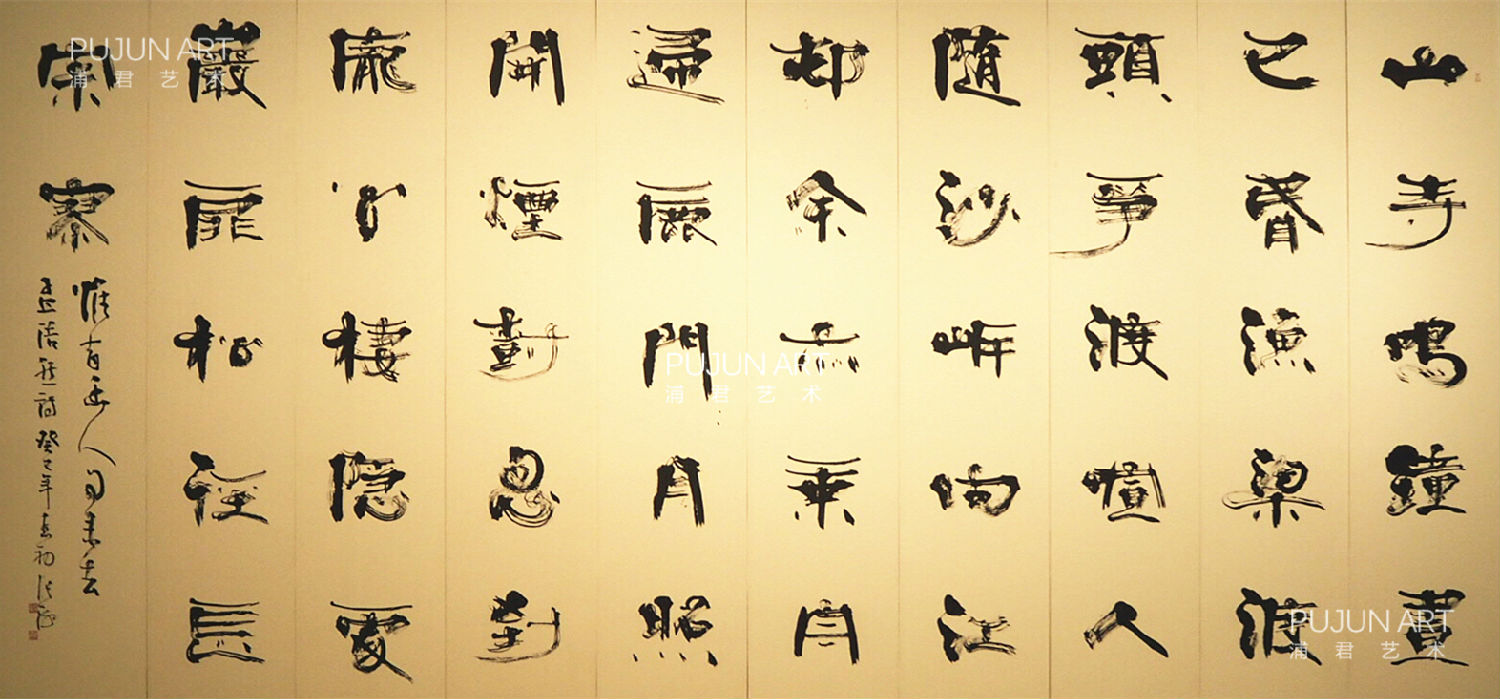 山寺鳴鐘晝
已昏漁梁渡
頭爭渡喧人
随沙岸向江
邨余亦乘舟
歸鹿門月照
開煙樹忽到
龐公棲隱處
巖扉松徑長
寂寥
惟有幽人自來去
孟浩然詩 癸巳年春初
PUJUN ART
浦君艺术
PUJUN ART
浦君艺术
PUJUN ART
浦君艺术